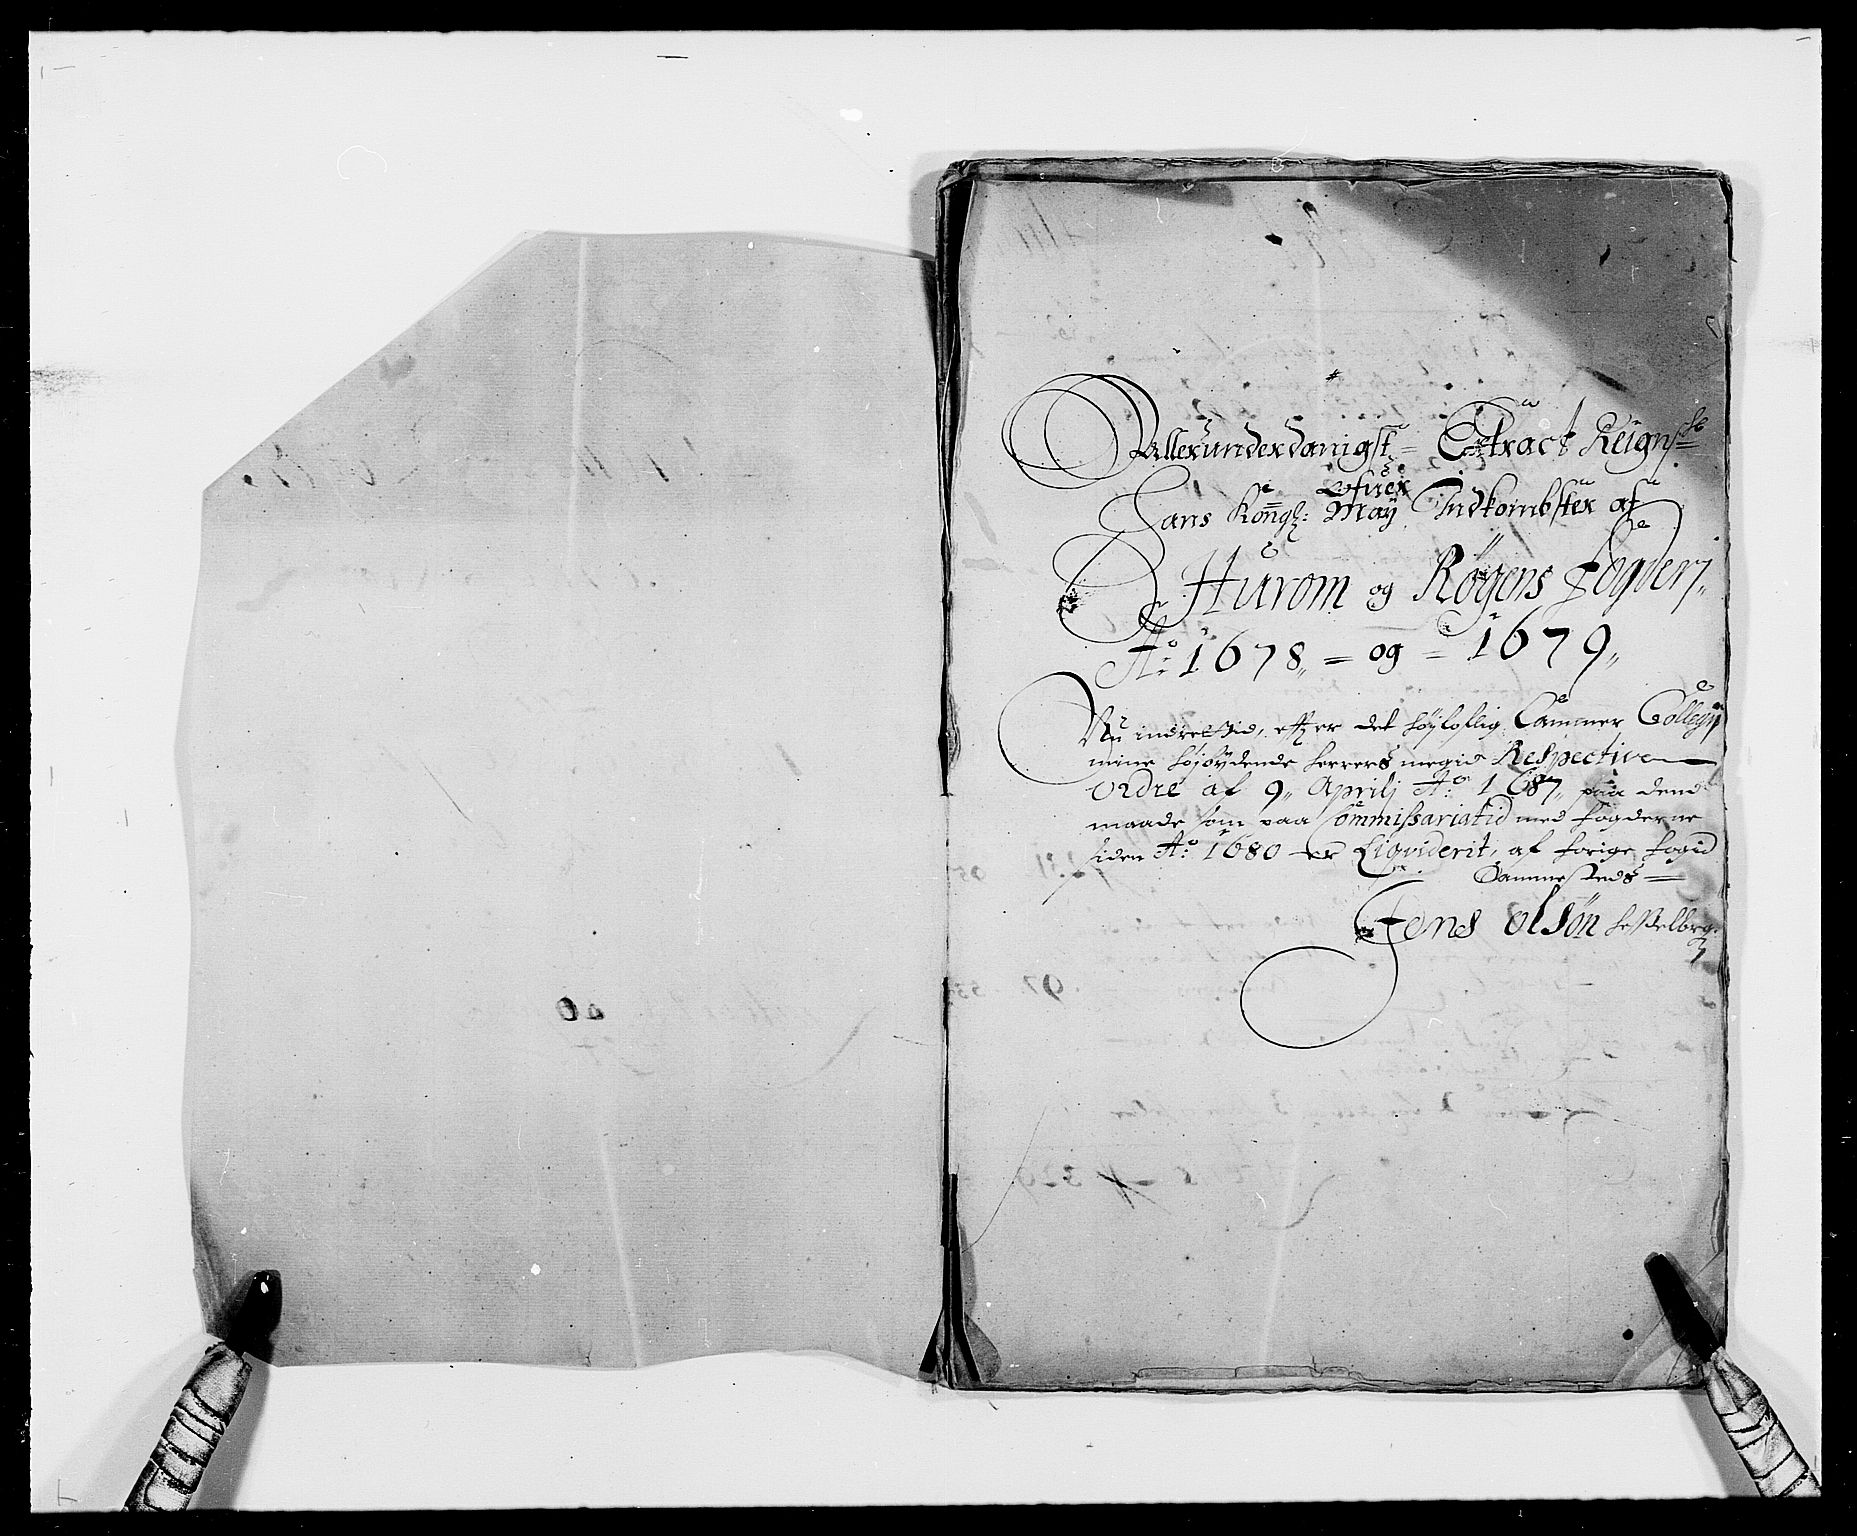 Allerunderdanigst = Extract Reignsk
ofver
Hans Kongl: May Indkombster af
Hurom og Røgens Fogderj
Ao: 1678 = og = 1679
Nu indrettid, effter det høyloflig Cammer Collegij
mine høibydende herrers megid Respective
Ordre af 9 Aprilj Ao: 1687, paa dend
maade som paa Commissariatid med fogderne
siden Ao: 1680 er Liqviderit, af forige fogid
Sammesteds =
Jens Olsøn